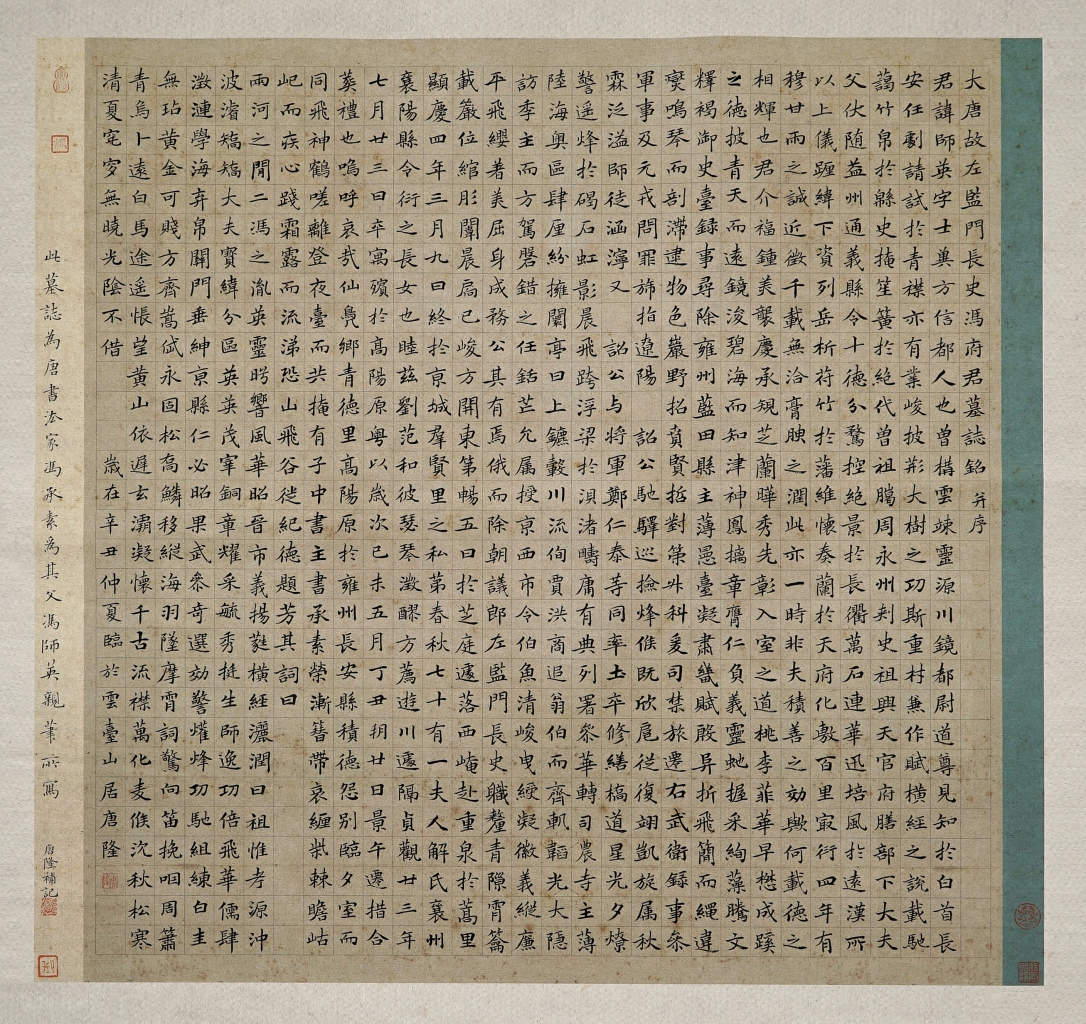 大唐故左監門長史馮府君墓誌銘 并序
君諱師英字士異方信都人也曾構雲竦靈源川鏡都尉道尊見知於白首長
安任劇請試於青襟亦有業峻披荊大樹之功斯重村兼作賦橫經之說載馳
藹竹帛於縣史掩笙簧於絕代曾祖騰周永州刺史祖興天官府膳部下大夫
父伏随益州通義縣令十德分騖控絕景於長衢萬石連華迅培風於遠漢所
以上儀躔緯下資列岳析符竹於藩維懷奏蘭於天府化敷百里寂行四年有
穆甘雨之誠近徵千載無洽膏腴之潤此亦一時非夫積善之効歟何載德之
相輝也君介福鍾美襲慶承規芝蘭曄秀先彰入室之道桃李菲華早懋成蹊
之德披青天而遠鏡浚碧海而知津神鳳摛章膺仁負義靈虵握采絢藻騰文
釋褐御史臺録事尋除雍州藍田縣主薄愚臺凝肅畿賦敢异折飛簡而繩違
孌鳴琴而剖滯逮物色巖野招賁賢哲對策外科爰司禁旅遷右武衛録事叅
軍事及元戎問罪旆指遼陽 詔公馳驛巡撿烽候既欣扈從復翊凱旋属秋
霖泛溢師徒涵濘又 詔公与將軍鄭仁泰等同率土卒修繕槁道星光夕燎
警遥烽於碣石虹影晨飛跨浮梁於浿渚疇庸有典列署叅華轉司農寺主薄
陸海奧區肆厘紛擁闤亭曰上鑣轂川流佝賈洪商追翁伯而齊軌韜光大隱
訪季主而方駕磐錯之任銛芒允属授京西市令伯魚清峻曳綬凝徽義縱廉
平飛纓著美屈身成務公其有焉俄而除朝議郎左監門長史職釐青隙霄籥
載嚴位綰彤闈晨扃已峻方開東第暢五曰於芝庭遽落西崦赴重泉於蒿里
顯慶四年三月九曰終於京城羣賢里之私第春秋七十有一夫人解氏襄州
襄陽縣令衍之長女也睦茲劉范和彼瑟琴澂醪方薦遊川遽隔貞觀廿三年
七月廿三曰卒寓殯於高陽原粵以歲次己未五月丁丑朔廿日景午遷措合
葬禮也嗚呼哀哉仙鳧鄉青德里高陽原於雍州長安縣積德怨别臨夕室而
同飛神鶴嗟離登夜臺而共掩有子中書主書承素榮漸簪帶哀纏欒棘瞻岵
屺而疚心踐霜露而流涕恐山飛谷徙紀德題芳其詞曰
兩河之閒二馮之胤英靈肹響風華昭晉市義揚蕤橫經灑潤曰祖惟考源沖
波濬矯矯大夫寶緯分區英英茂宰銅章耀采毓秀挺生師逸功倍飛華儒肆
澂漣學海弃帛關門垂紳京縣仁必昭果武叅奇選効警爟烽功馳組練白圭
無玷黃金可賤方齊嵩岱永固松喬鱗移縱海羽墜摩霄詞驚向笛挽咽周簫
青烏卜遠白馬途遥悵望黃山依遲玄灞凝懷千古流襟萬化麦候沉秋松寒
清夏窀穸無曉光陰不借 歲在辛丑仲夏臨於雲臺山居唐隆
此墓誌為唐書法家馮承素為其父馮師英親筆所寫
唐隆補記